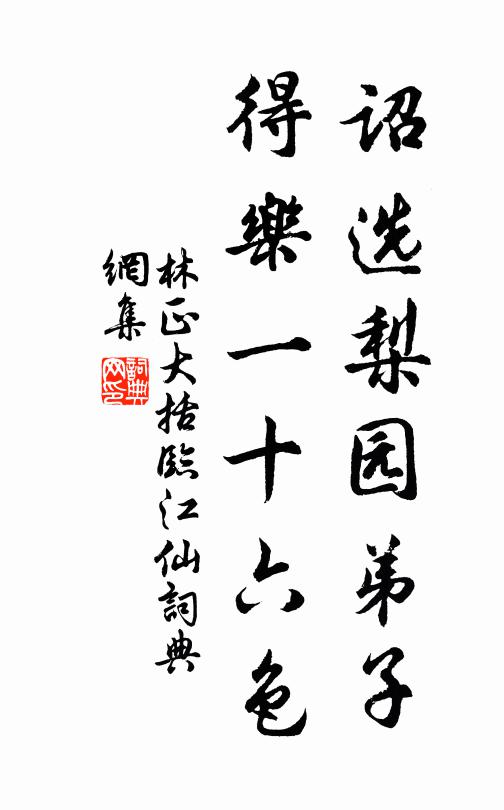 诏选梨园弟子
得樂一十六色
林正大括臨江仙詞典
網集
詞典
网印